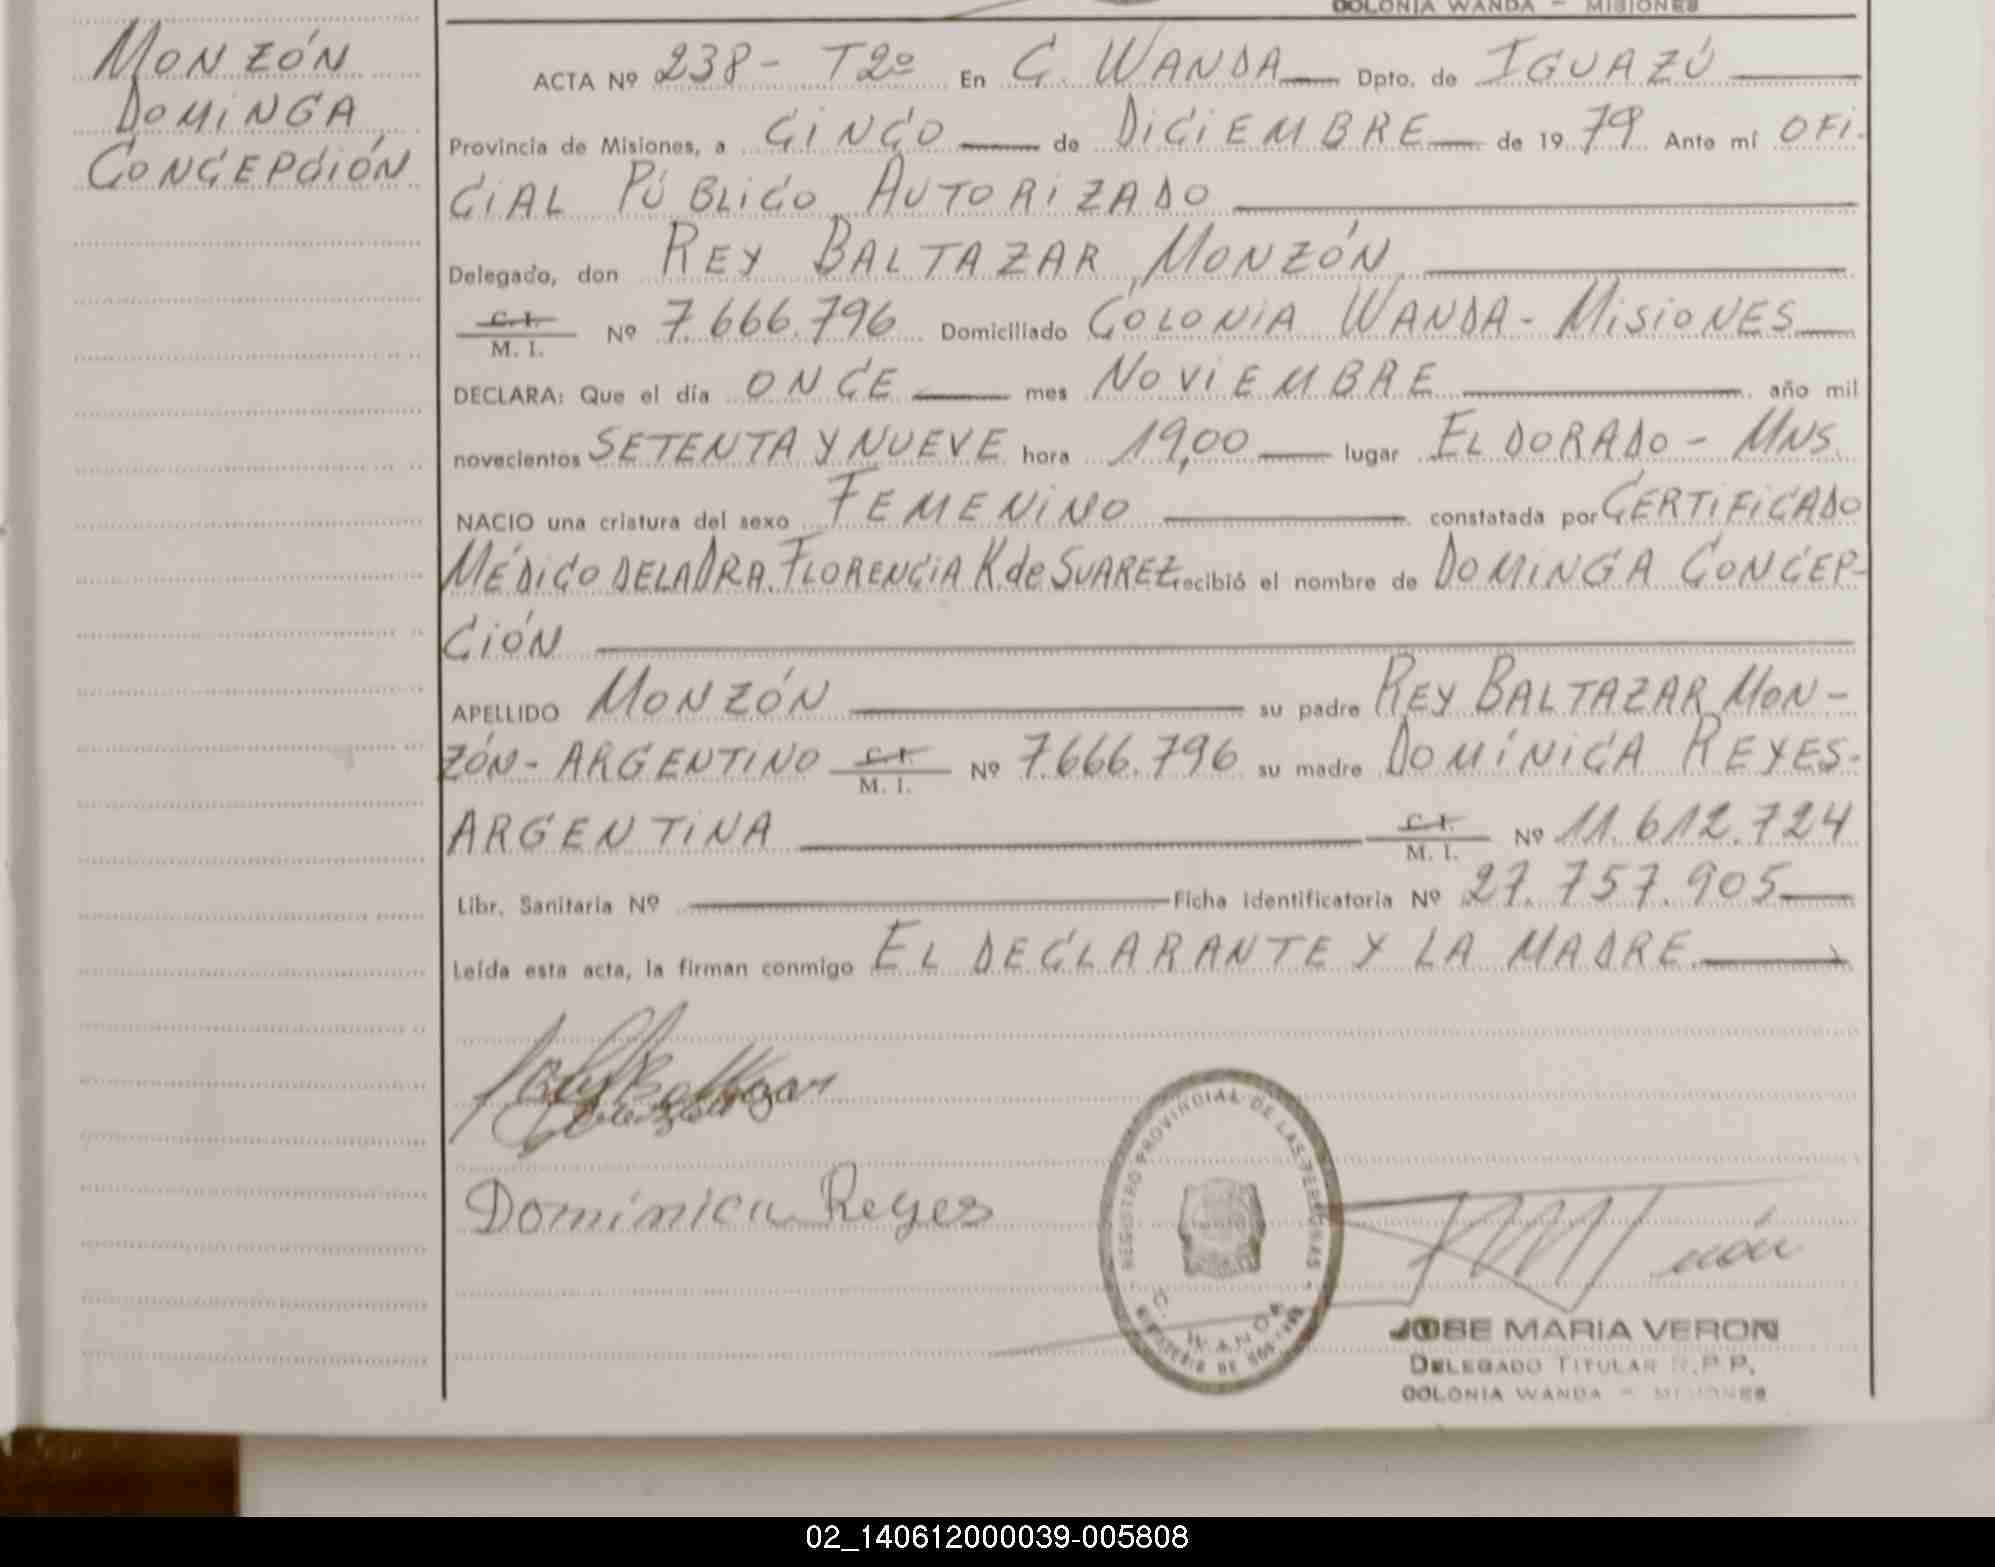 COLONIA WANDA - MISIONES
MONZÓN
DOMINGA
CONCEPCIÓN
ACTA Nº 238- T2º En C. WANDA Dpto. de IGUAZÚ
Provincia de Misiones, a CINCO de DICIEMBRE de 1979 Ante mí OFI-
CIAL PÚBLICO AUTORIZADO
Delegado, don REY BALTAZAR MONZÓN
C. I.
M. I. Nº 7.666.796 Domiciliado COLONIA WANDA - MISIONES
DECLARA: Que el día ONCE mes NOVIEMBRE año mil
novecientos SETENTA Y NUEVE hora 19,00 lugar ELDORADO - MNS.
NACIO una criatura del sexo FEMENINO constatada por CERTIFICADO
MÉDICO DE LA DRA. FLORENCIA K de SUAREZ recibió el nombre de DOMINGA CONCEP-
CIÓN
APELLIDO MONZÓN su padre REY BALTAZAR MON-
ZÓN - ARGENTINO C. I.
M. I. Nº 7.666.796 su madre DOMÍNICA REYES-
ARGENTINA C. I.
M. I. Nº 11.612.724
Libr. Sanitaria Nº Ficha identificatoria Nº 27.757.905
Leída esta acta, la firman conmigo EL DECLARANTE Y LA MADRE
Rey Baltazar
Domínica Reyes
REGISTRO PROVINCIAL DE LAS PERSONAS
C. WANDA
MINISTERIO DE
JOSE MARIA VERON
DELEGADO TITULAR R.P.P.
COLONIA WANDA - MISIONES
02_140612000039-005808